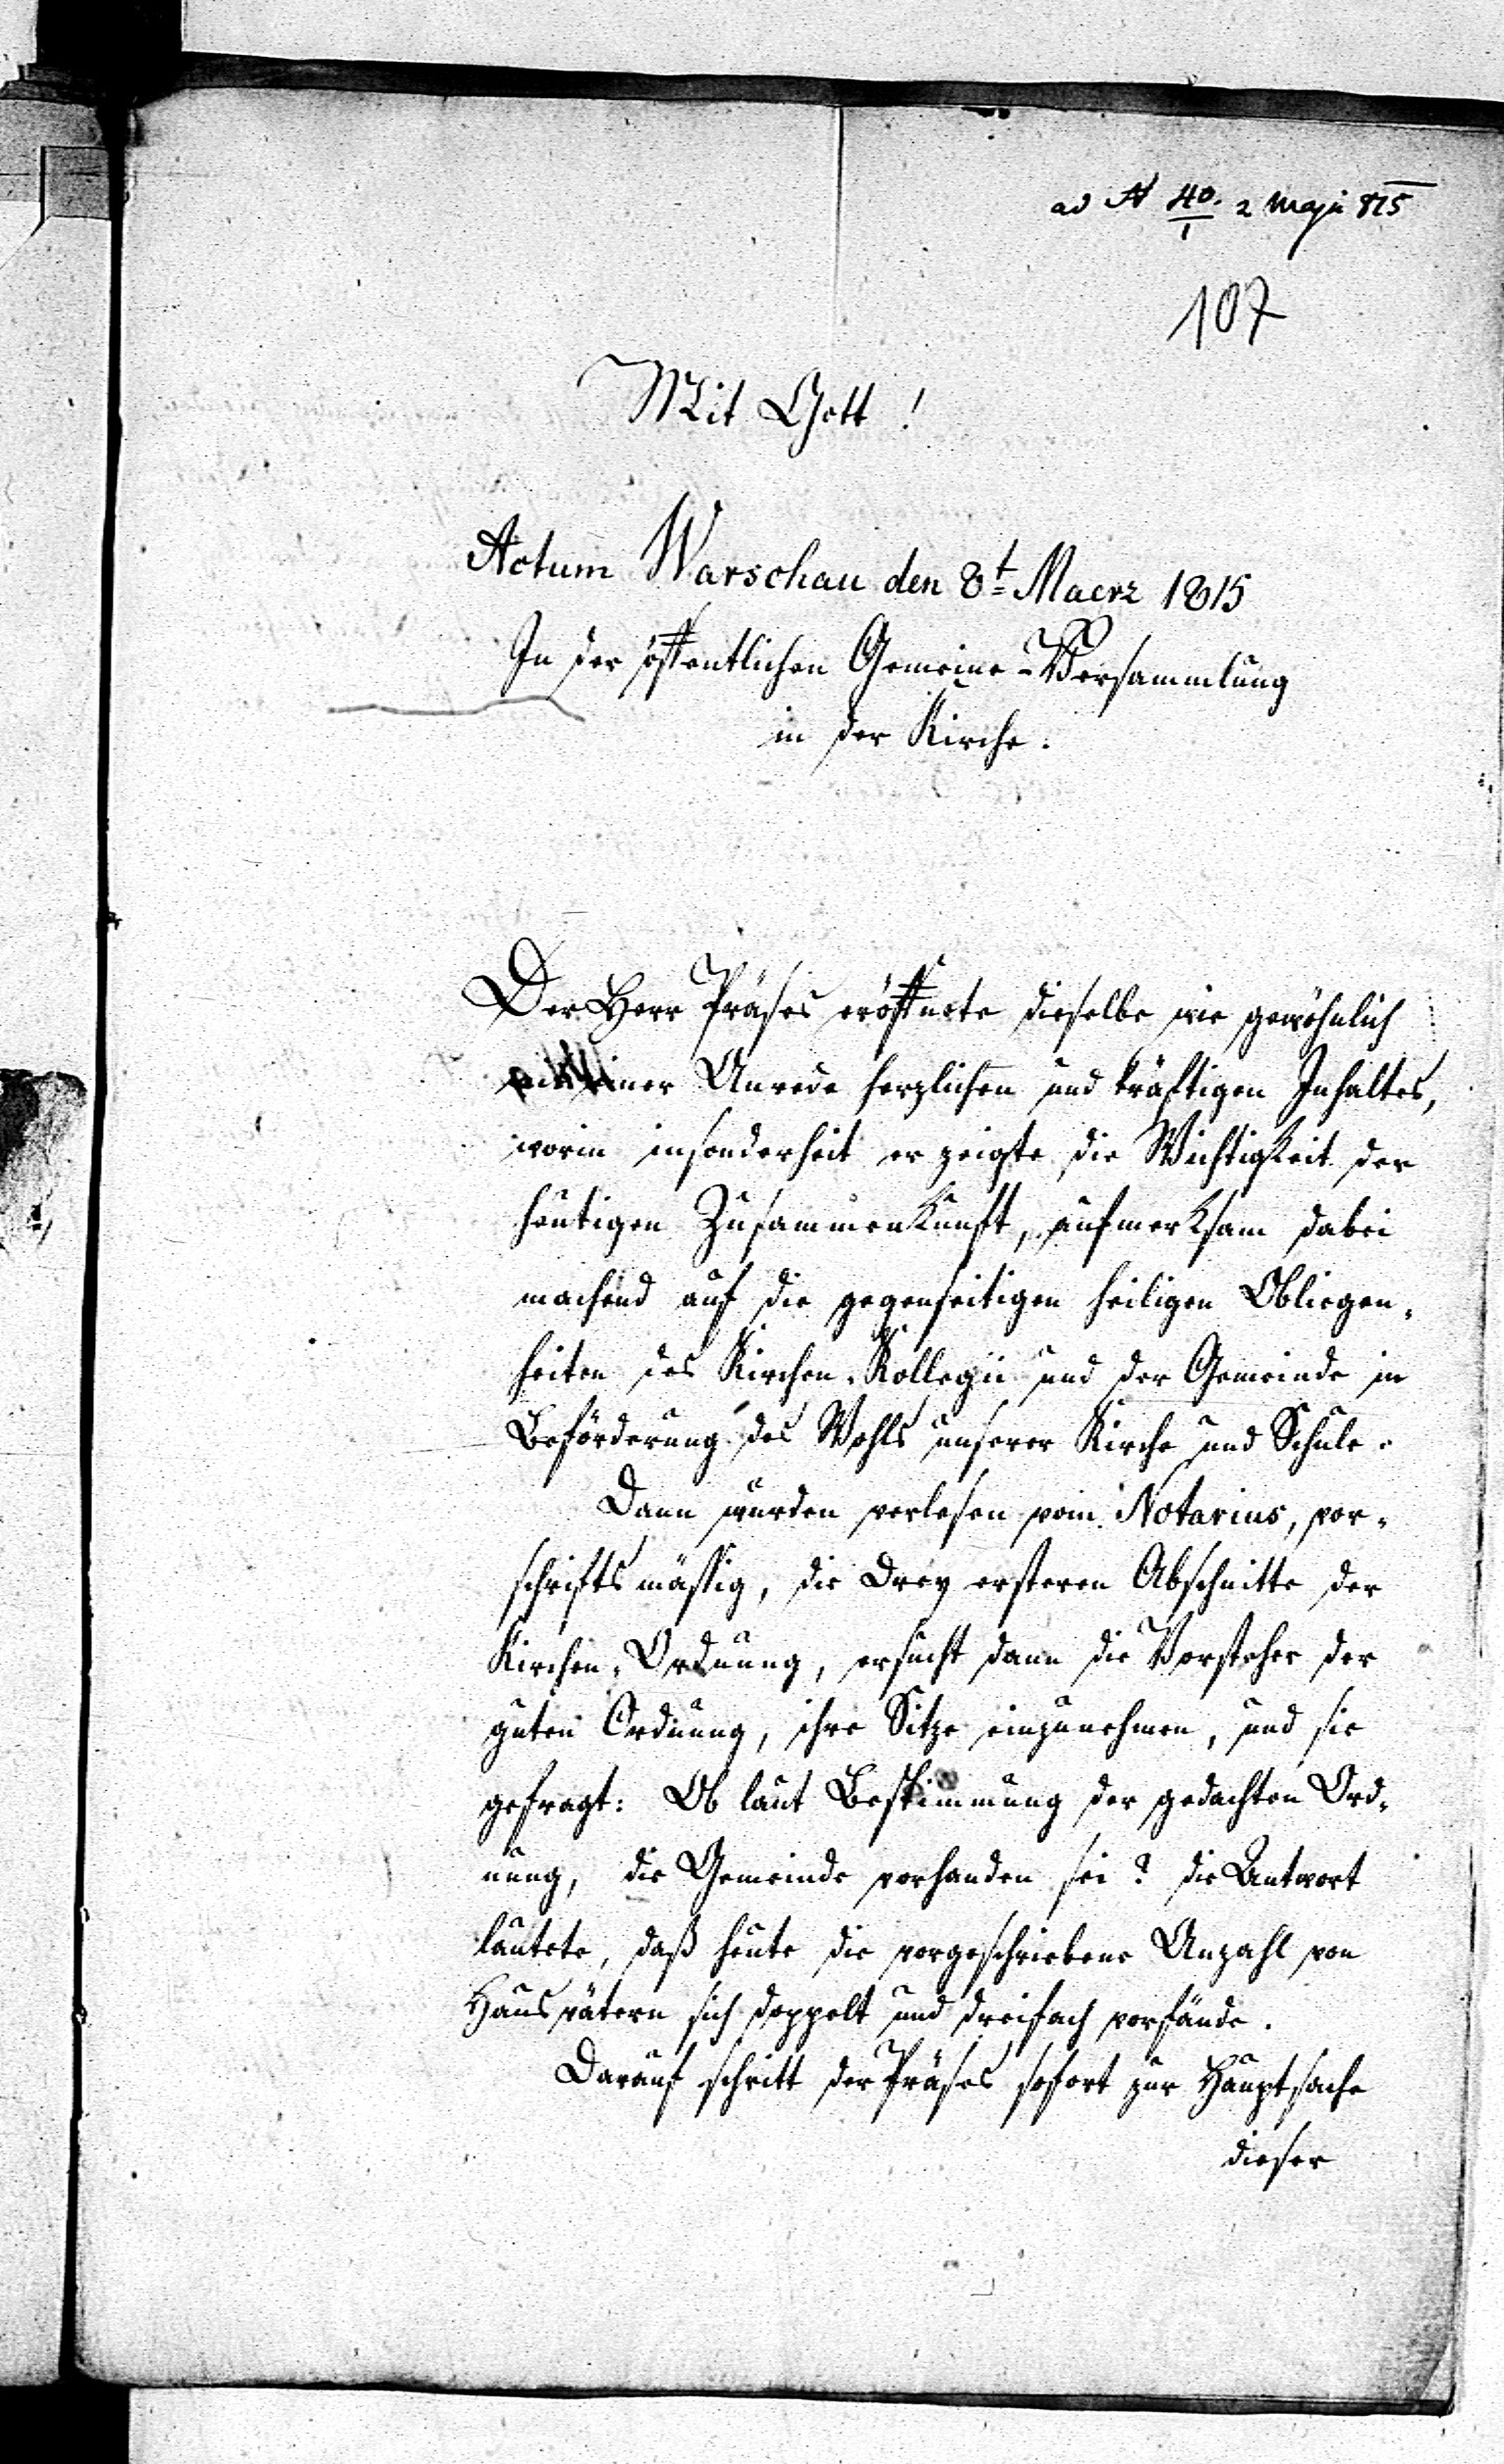 ad N 40. 2 Maji 815
1
107
Mit Gott!
Actum Warschau den 8t Maerz 1815
In der öffentlichen Gemeine-Versammlung
in der Kirche.
Der Herr Präses eröffnete dieselbe wie gewöhnlich
mit einer Anrede herzlichen und kräftigen Inhaltes,
worin insonderheit er zeigte die Wichtigkeit der
heutigen Zusammenkunft, aufmerksam dabei
machend auf die gegenseitigen heiligen Obliegen-
heiten des Kirchen-Kollegii und der Gemeinde in
Beförderung des Wohls unserer Kirche und Schule.
Dann wurden verlesen vom Notarius, vor-
schriftsmäßig, die drey ersteren Abschnitte der
Kirchen-Ordnung, ersucht dann die Vorsteher der
guten Ordnung, ihre Sitze einzunehmen, und sie
gefragt: Ob laut Bestimmung der gedachten Ord-
nung, die Gemeinde vorhanden sei? die Antwort
lautete, daß heute die vorgeschriebene Anzahl von
Hausvätern sich doppelt und dreifach vorfände.
Darauf schritt der Präses sofort zur Hauptsache
dieser